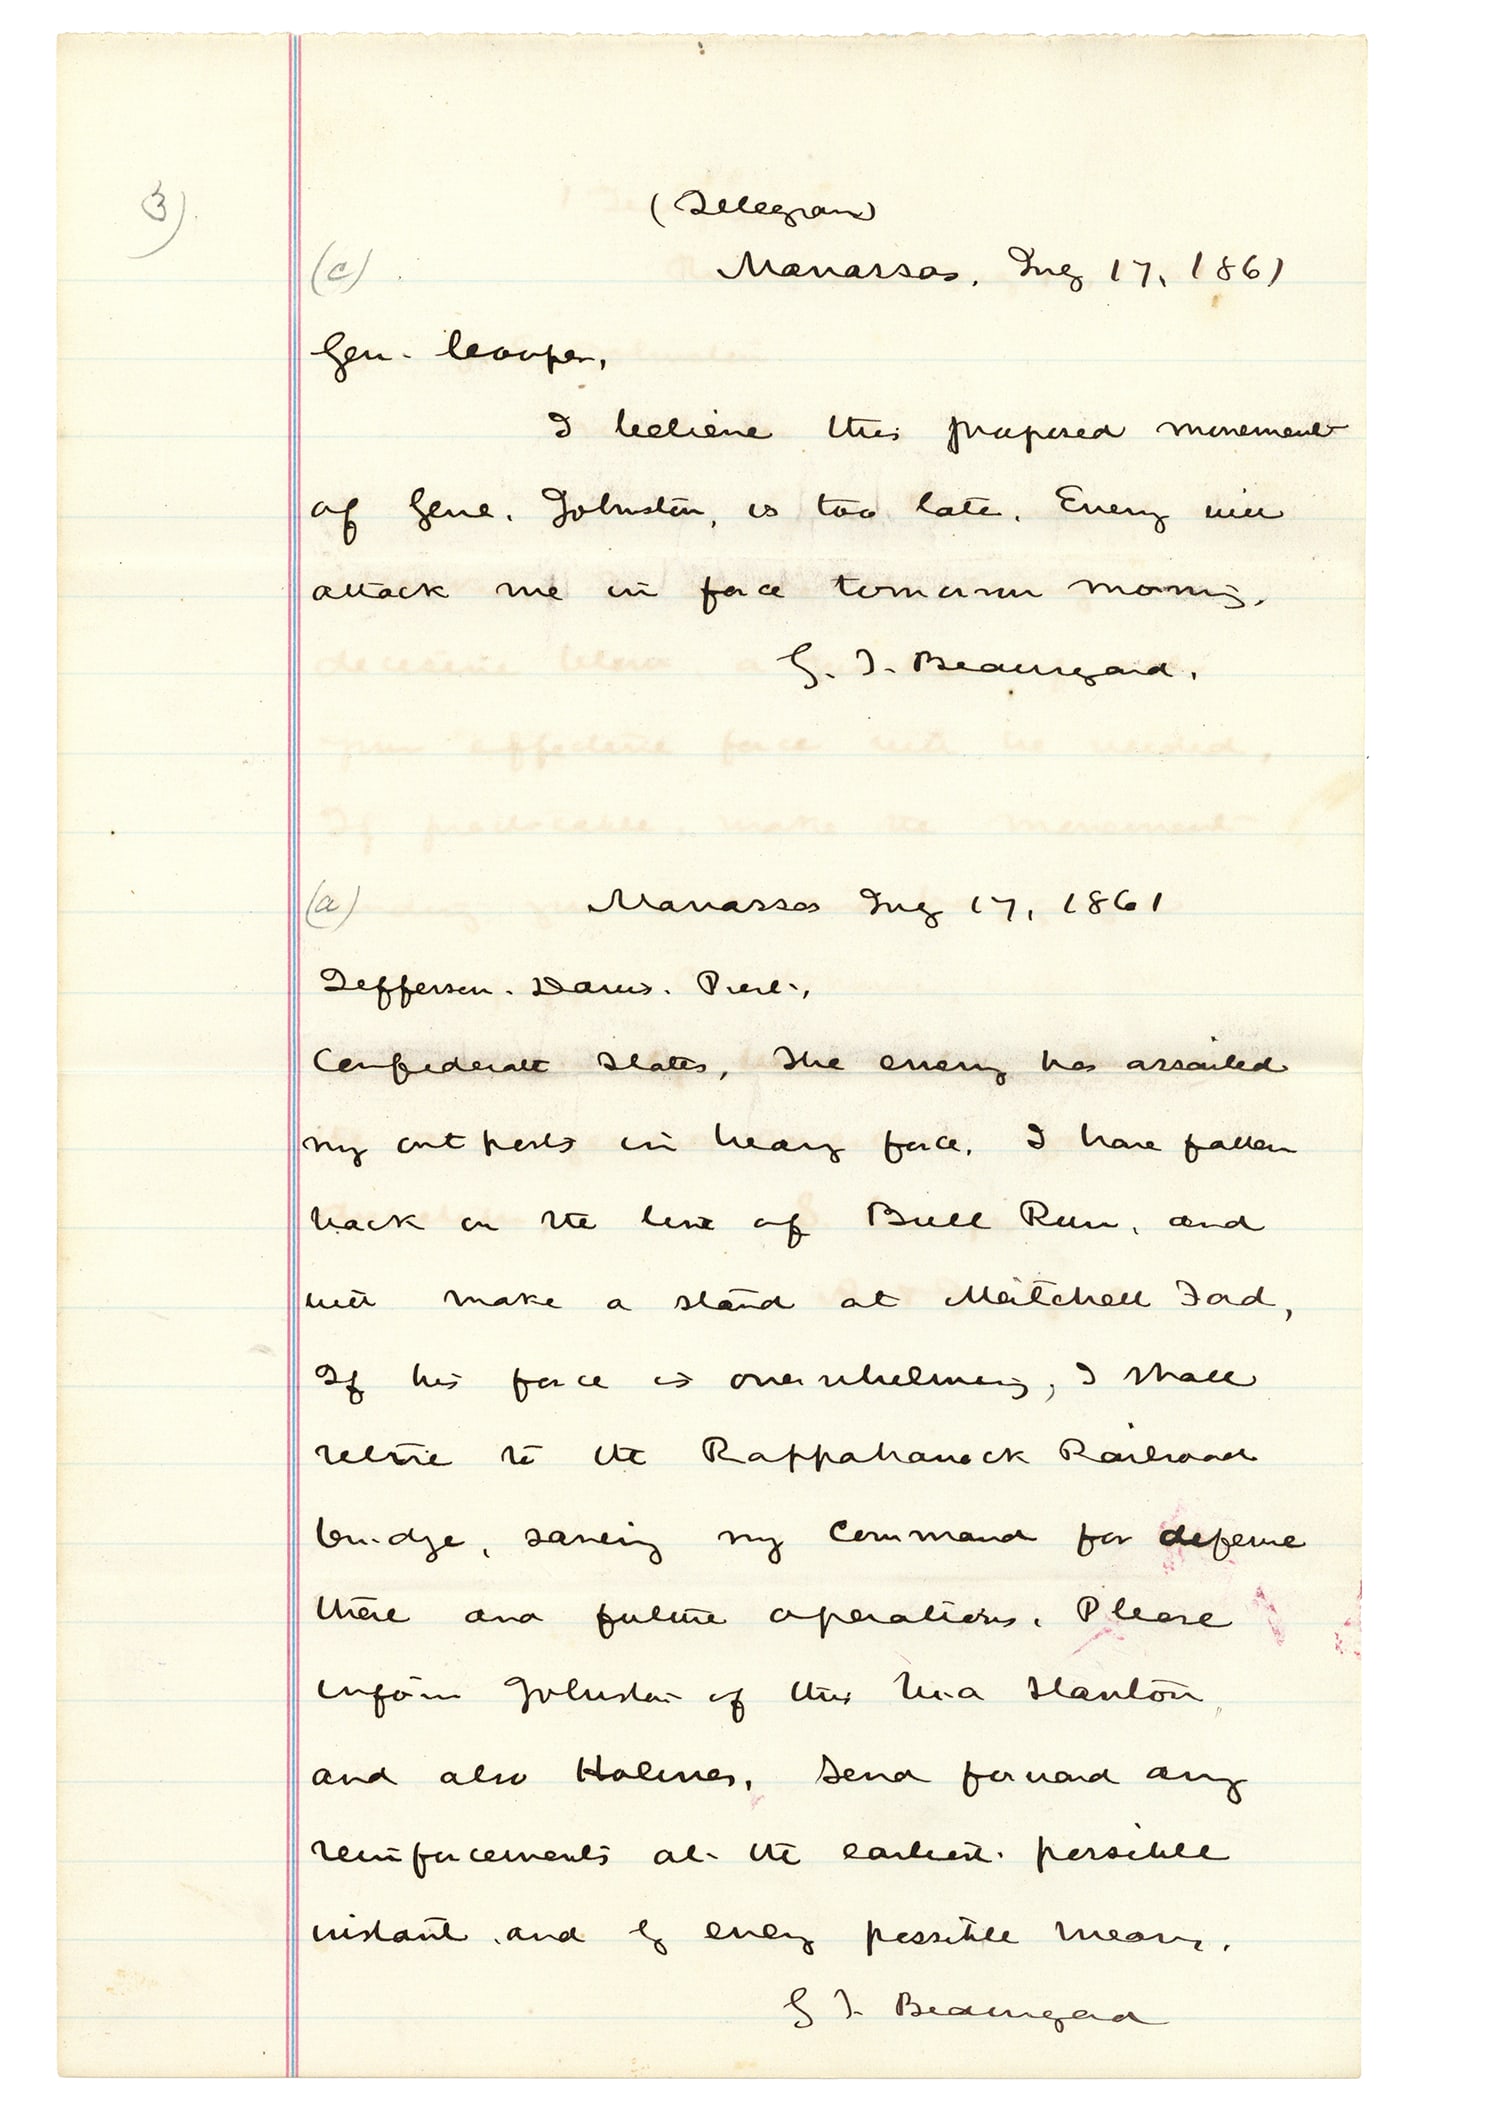 3).
(Telegram)
(c) Manassas, July 17, 1861
Gen. Cooper,
I believe this proposed movement
of Genl. Johnston, is too late. Enemy will
attack me in force tomorrow morning.
G. T. Beauregard.
(a) Manassas July 17, 1861
Jefferson. Davis. Prest.,
Confederate States, The enemy has assailed
my out posts in heavy force. I have fallen
back on the line of Bull Run, and
will make a stand at Mitchell Ford,
If his force is overwhelming, I shall
retire to the Rappahanock Railroad
bridge, saving my Command for defense
there and future operations. Please
inform Johnston of this via Stanton,
and also Holmes. Send forward any
reinforcements at the earliest possible
instant and by every possible means.
G T. Beauregard